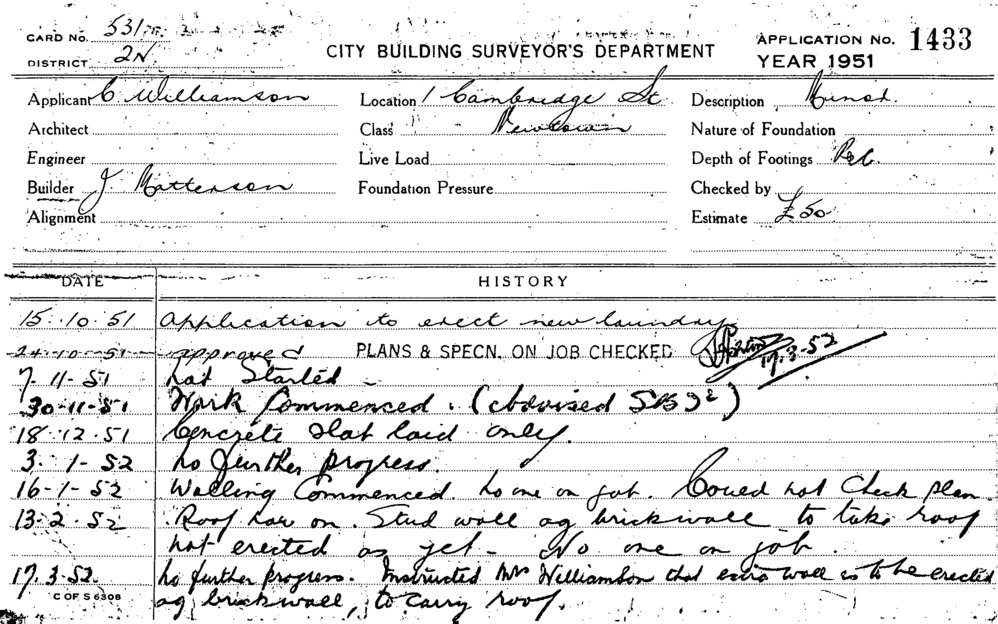 CARD No. 531
DISTRICT 2N
CITY BUILDING SURVEYOR'S DEPARTMENT
APPLICATION No. 1433
YEAR 1951
Applicant C Williamson
Location 1 Cambridge St
Description Minor.
Architect
Class Newtown
Nature of Foundation
Engineer
Live Load
Depth of Footings
Builder J. Matterson
Foundation Pressure
Checked by
Alignment
Estimate £50
DATE HISTORY
15.10.51 Application to erect new laundry
24.10.51 approved PLANS & SPECN. ON JOB CHECKED 17.3.52
7-11-51 Not Started -
30-11-51 Work Commenced. (
18.12.51 Concrete slab laid only.
3.1-52 No further progress.
16-1-52 Walling Commenced. No one on job. Could not Check plan
13-2.52 Roof now on. Stud wall ag brickwall to take roof
not erected as yet - No one on job.
17.3.52. No further progress. Instructed Mrs Williamson that extra wall is to be erected
C OF S 6308
ag brickwall, to carry roof.